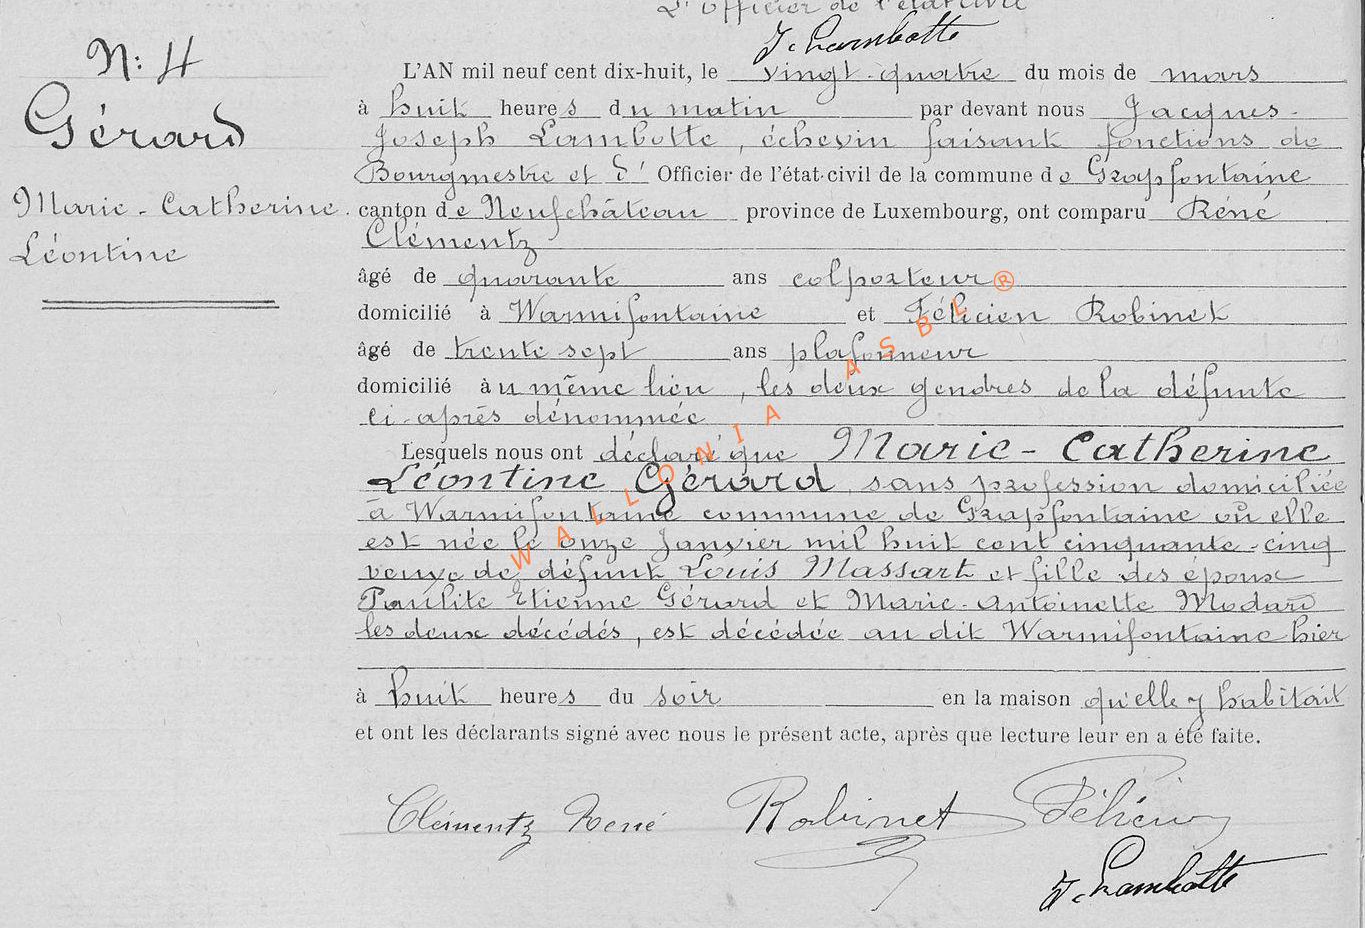 L'officier de l'état civil
J. Lambotte
N: 4
Gérard
Marie-Catherine
Léontine
L'AN mil neuf cent dix-huit, le vingt-quatre du mois de mars
à huit heures du matin par devant nous Jacques-
Joseph Lambotte, échevin faisant fonctions de
Bourgmestre et d' Officier de l'état-civil de la commune de Grapfontaine
canton de Neufchâteau province de Luxembourg, ont comparu Réné
Clémentz
âgé de quarante ans colporteur
domicilié à Warmifontaine et Félicien Robinet
âgé de trente sept ans plafonneur
domicilié au même lieu, les deux gendres de la défunte
ci-après dénommée
Lesquels nous ont déclaré que Marie-Catherine
Léontine Gérard, sans profession domiciliée
à Warmifontaine commune de Grapfontaine où elle
est née le onze Janvier mil huit cent cinquante-cinq
veuve de défunt Louis Massart et fille des époux
Etienne Gérard et Marie-Antoinette Modard
les deux décédés, est décédée au dit Warmifontaine hier
à huit heures du soir en la maison qu'elle y habitait
et ont les déclarants signé avec nous le présent acte, après que lecture leur en a été faite.
Clémentz René Robinet Félicien
J. Lambotte
WALLONIA ASBL ®